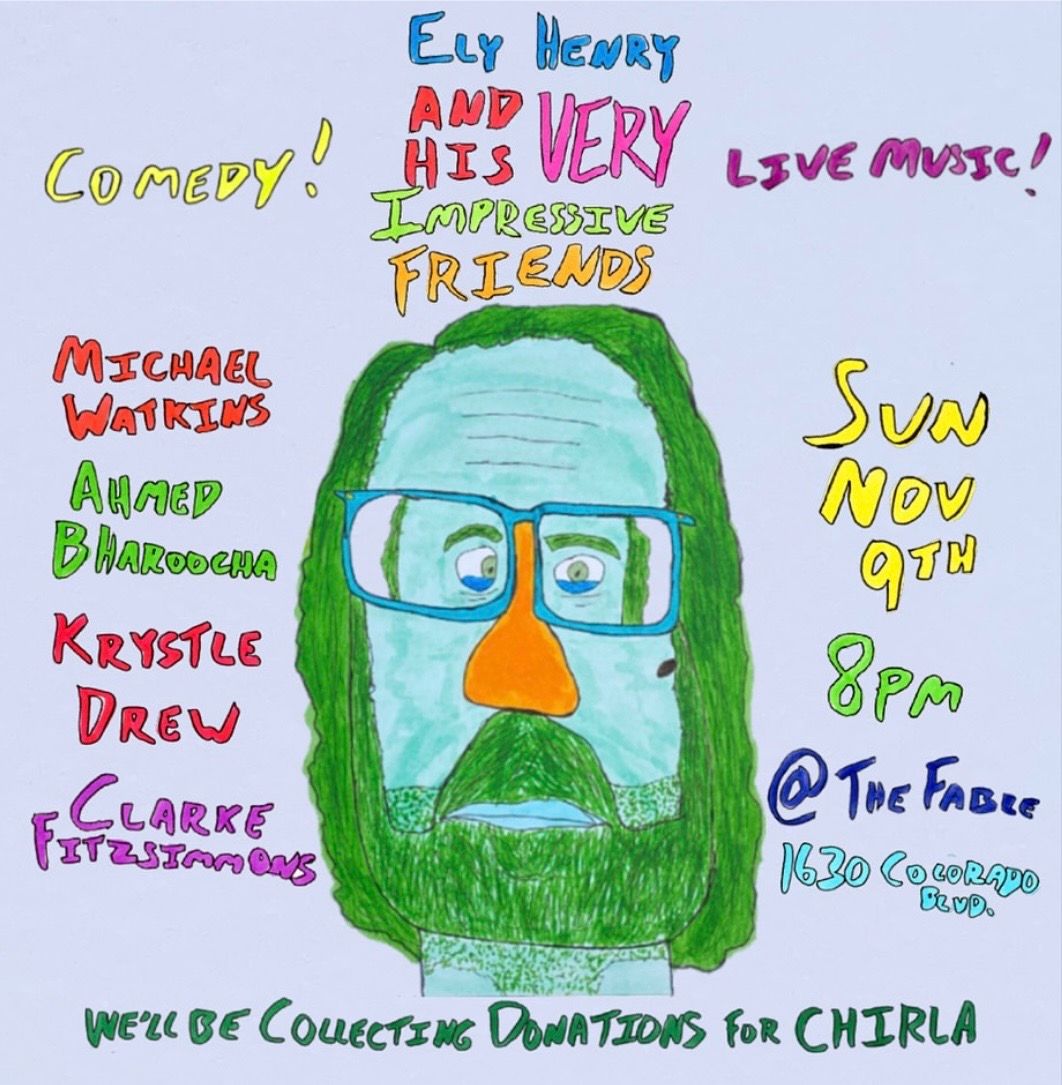 ELY HENRY
AND
HIS VERY
IMPRESSIVE
FRIENDS
COMEDY!
LIVE MUSIC!
MICHAEL
WATKINS
AHMED
BHAROOCHA
KRYSTLE
DREW
CLARKE
FITZSIMMONS
SUN
NOV
9TH
8PM
@ THE FABLE
1630 COLORADO
BLVD.
WE'LL BE COLLECTING DONATIONS FOR CHIRLA